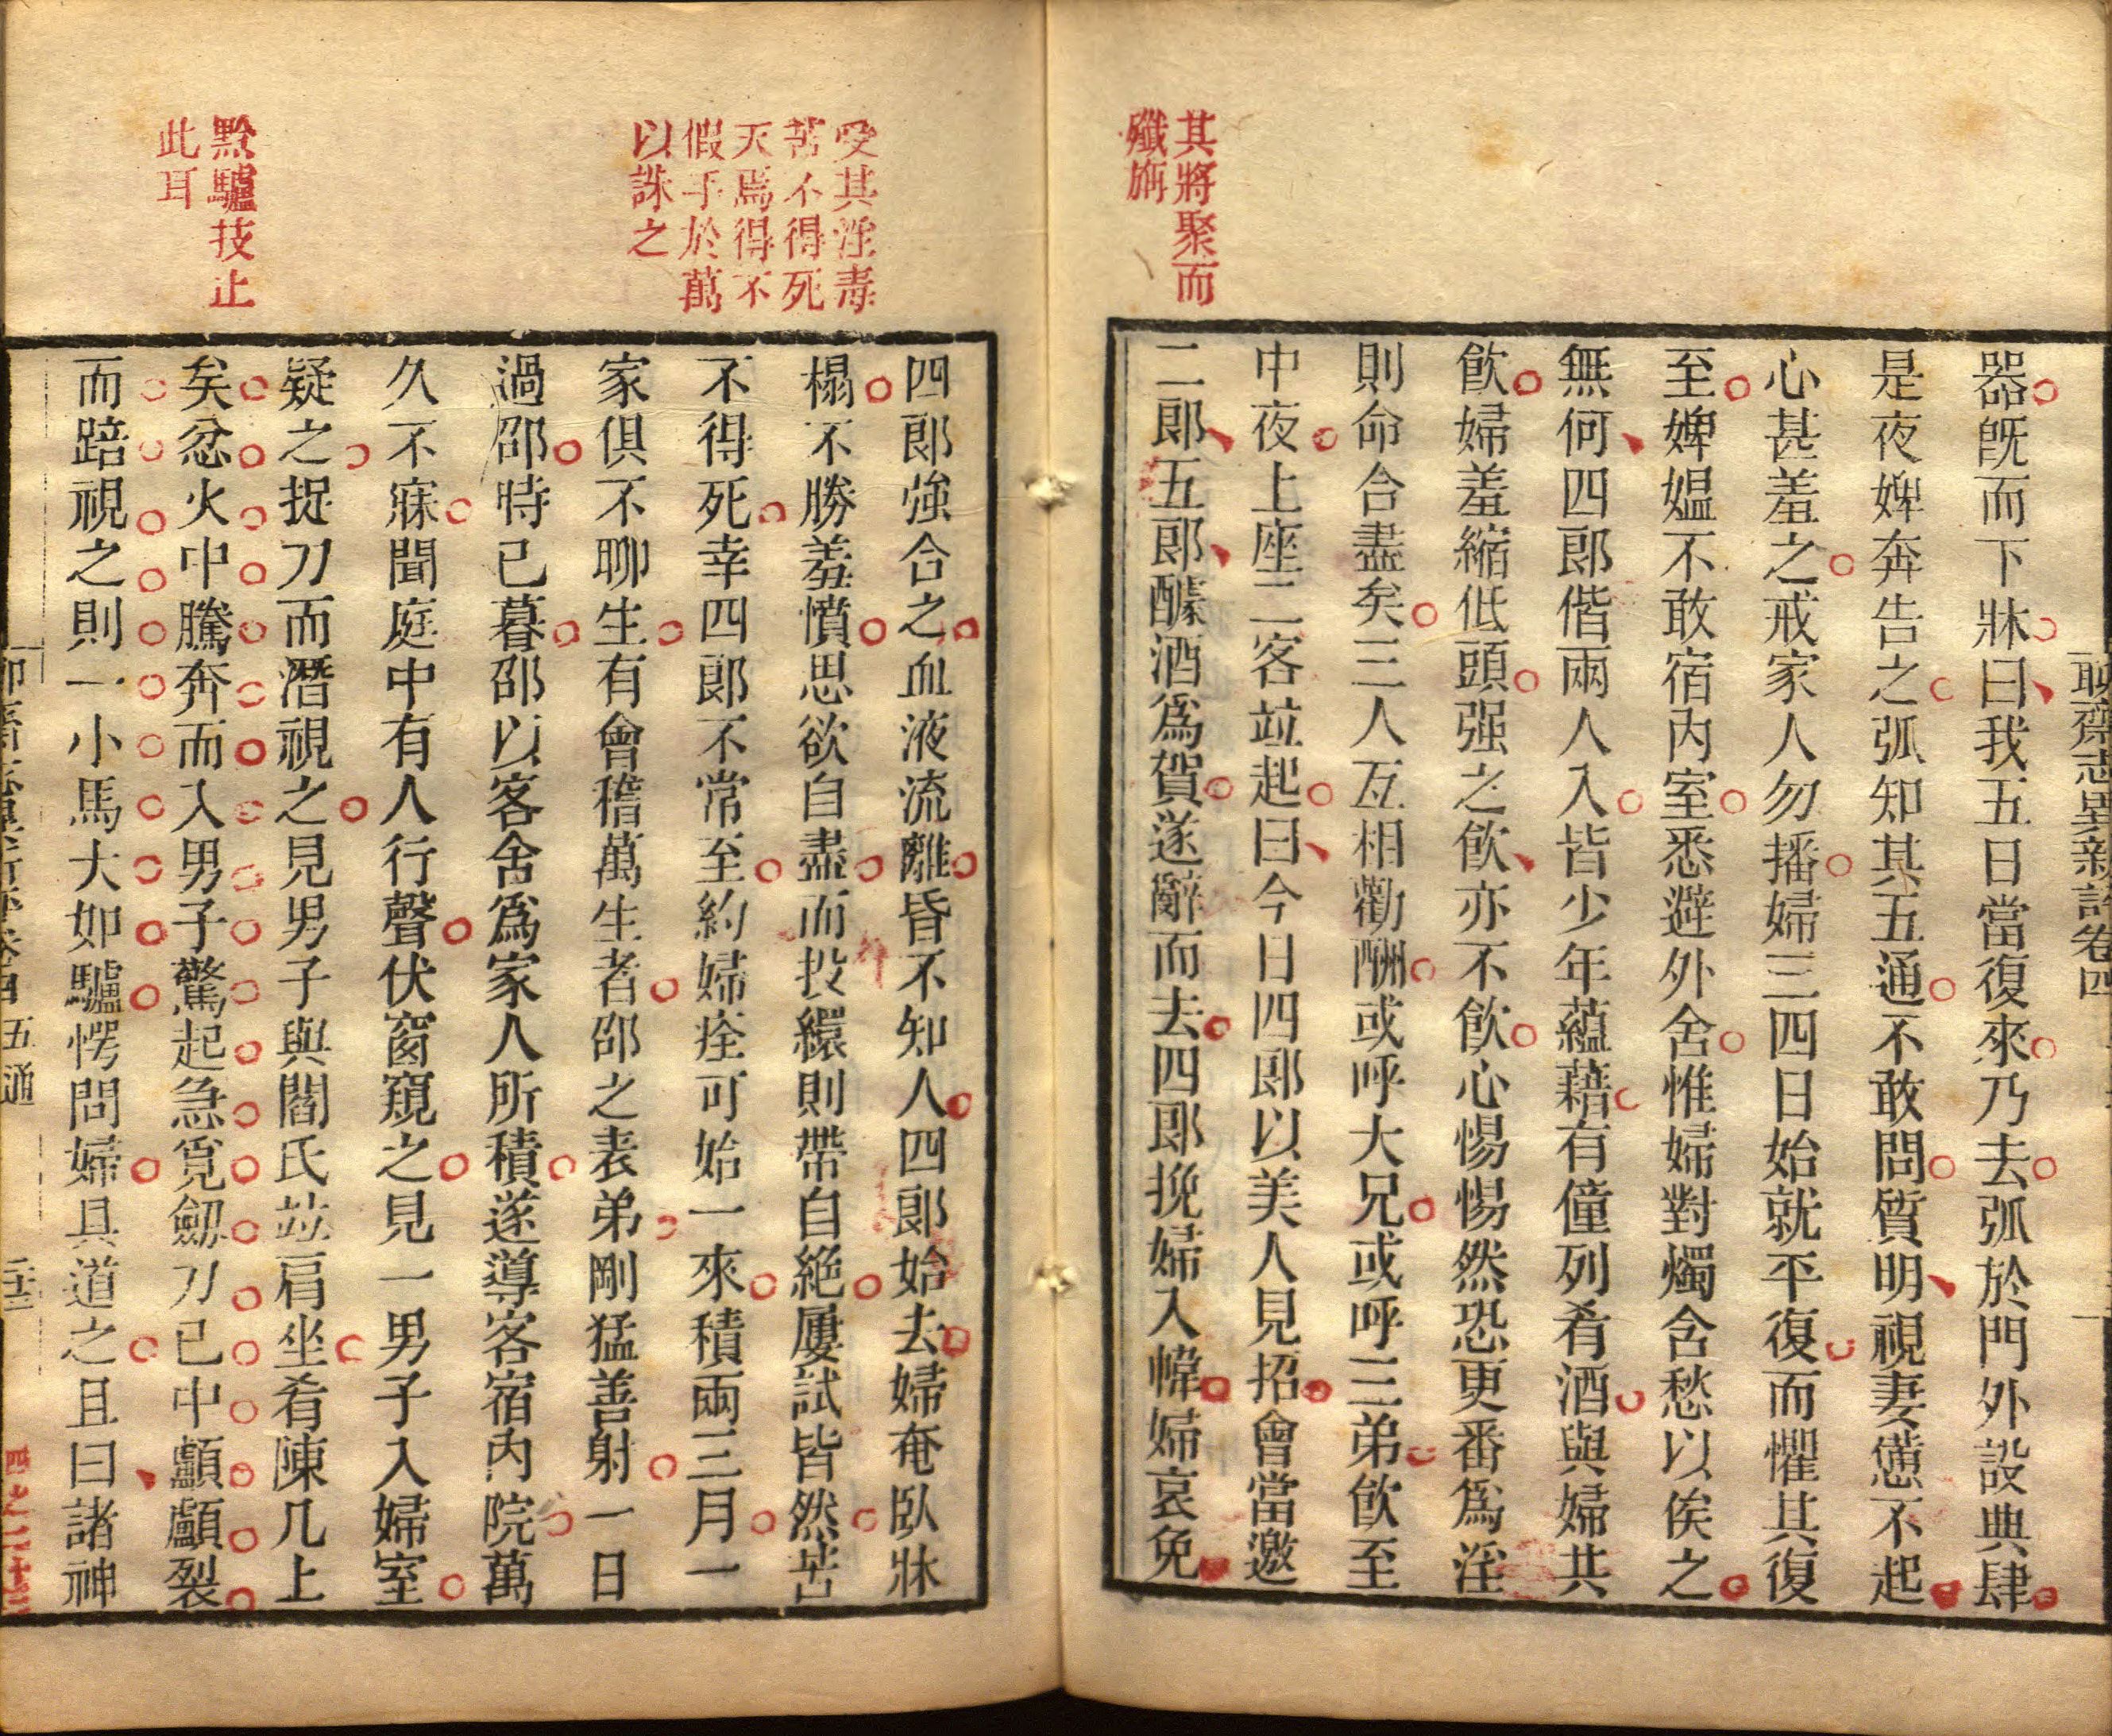 聊齋志異新評卷四
其將聚而
殲旃
器旣而下牀曰我五日當復來乃去弧於門外設典肆
是夜婢奔告之弧知其五通不敢問質明視妻憊不起
心甚羞之戒家人勿播婦三四日始就平復而懼其復
至婢媼不敢宿內室悉避外舍惟婦對燭含愁以俟之
無何四郎偕兩人入皆少年蘊藉有僮列肴酒與婦共
飮婦羞縮低頭强之飮亦不飮心惕惕然恐更番爲淫
則命合盡矣三人互相勸酬或呼大兄或呼三弟飮至
中夜上座二客竝起曰今日四郎以美人見招會當邀
二郎五郎醵酒爲賀遂辭而去四郎挽婦入幃婦哀免
受其淫毒
苦不得死
天焉得不
假手於萬
以誅之
黔驢技止
此耳
四郎強合之血液流離昏不知人四郎始去婦奄臥牀
榻不勝羞憤思欲自盡而投繯則帶自絕屢試皆然苦
不得死幸四郎不常至約婦痊可始一來積兩三月一
家俱不聊生有會稽萬生者邵之表弟剛猛善射一日
過邵時已暮邵以客舍爲家人所積遂導客宿內院萬
久不寐聞庭中有人行聲伏窗窺之見一男子入婦室
疑之捉刀而潛視之見男子與閻氏竝肩坐肴陳几上
矣忿火中騰奔而入男子驚起急覓劒刀已中顱顱裂
而踣視之則一小馬大如驢愕問婦婦具道之且曰諸神
五通
四之二十三